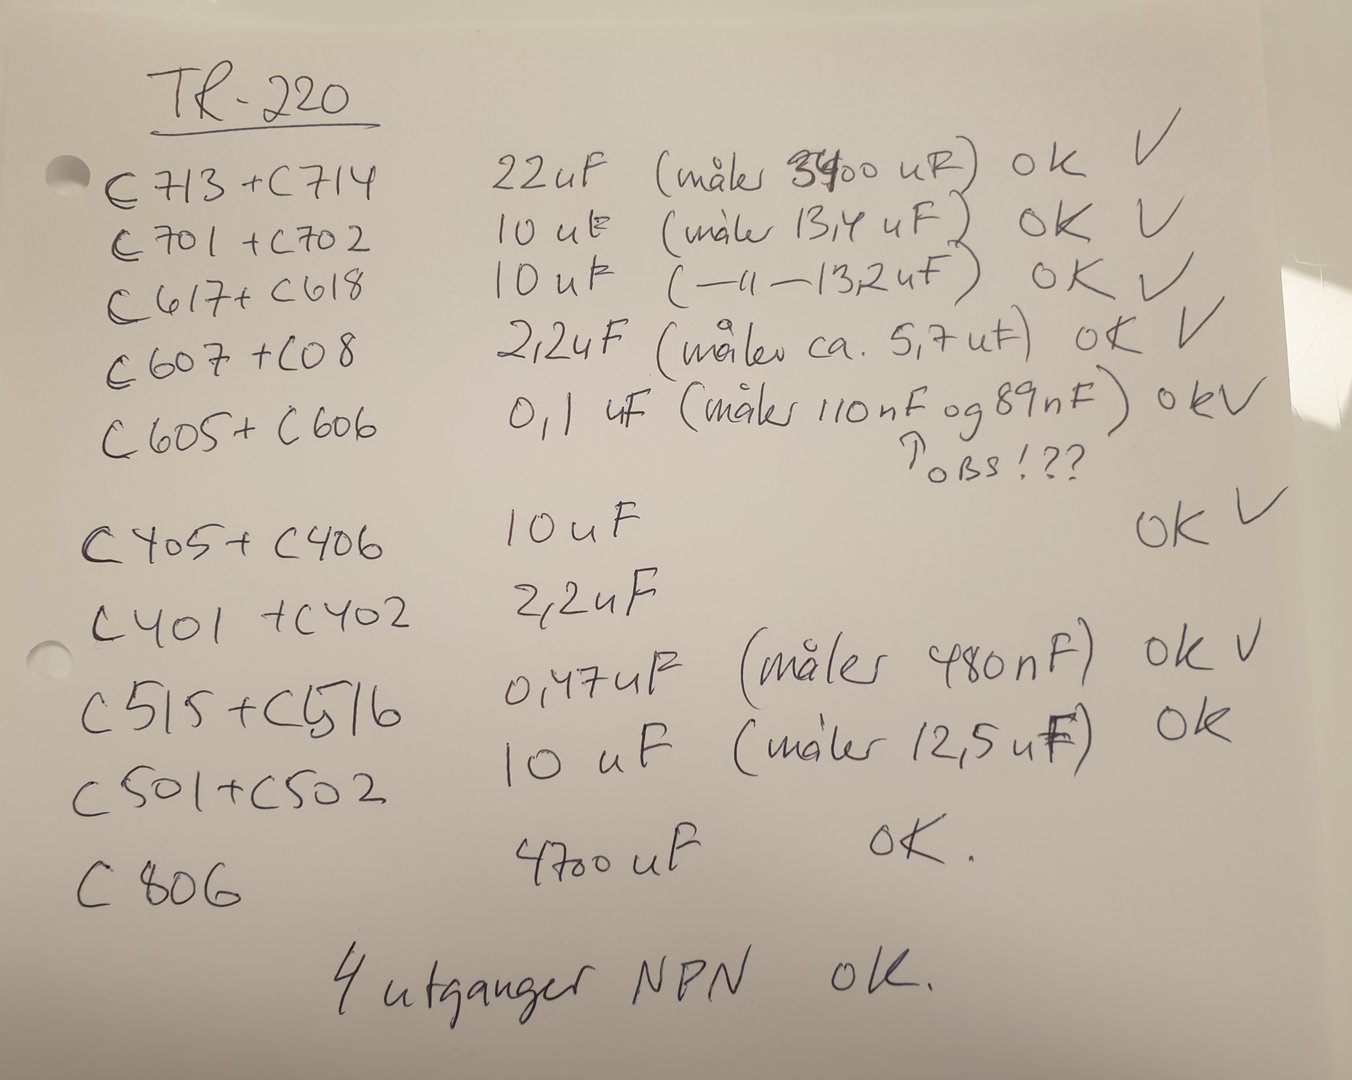 TR-220
C713 +C714 22uF (måler 3400 uF) OK ✓
C701 +C702 10 uF (måler 13,4 uF) OK ✓
C617+ C618 10 uF (—"—13,2uF) OK ✓
C607 +C08 2,2uF (måler ca. 5,7uF) OK ✓
C605+ C606 0,1 uF (måler 110nF og 89nF) ok✓
↑OBS!??
C405+ C406 10uF OK ✓
C401 +C402 2,2uF
C515+C516 0,47uF (måler 480nF) ok ✓
C501+C502 10 uF (måler 12,5uF) ok
C806 4700 uF OK.
4 utganger NPN OK.